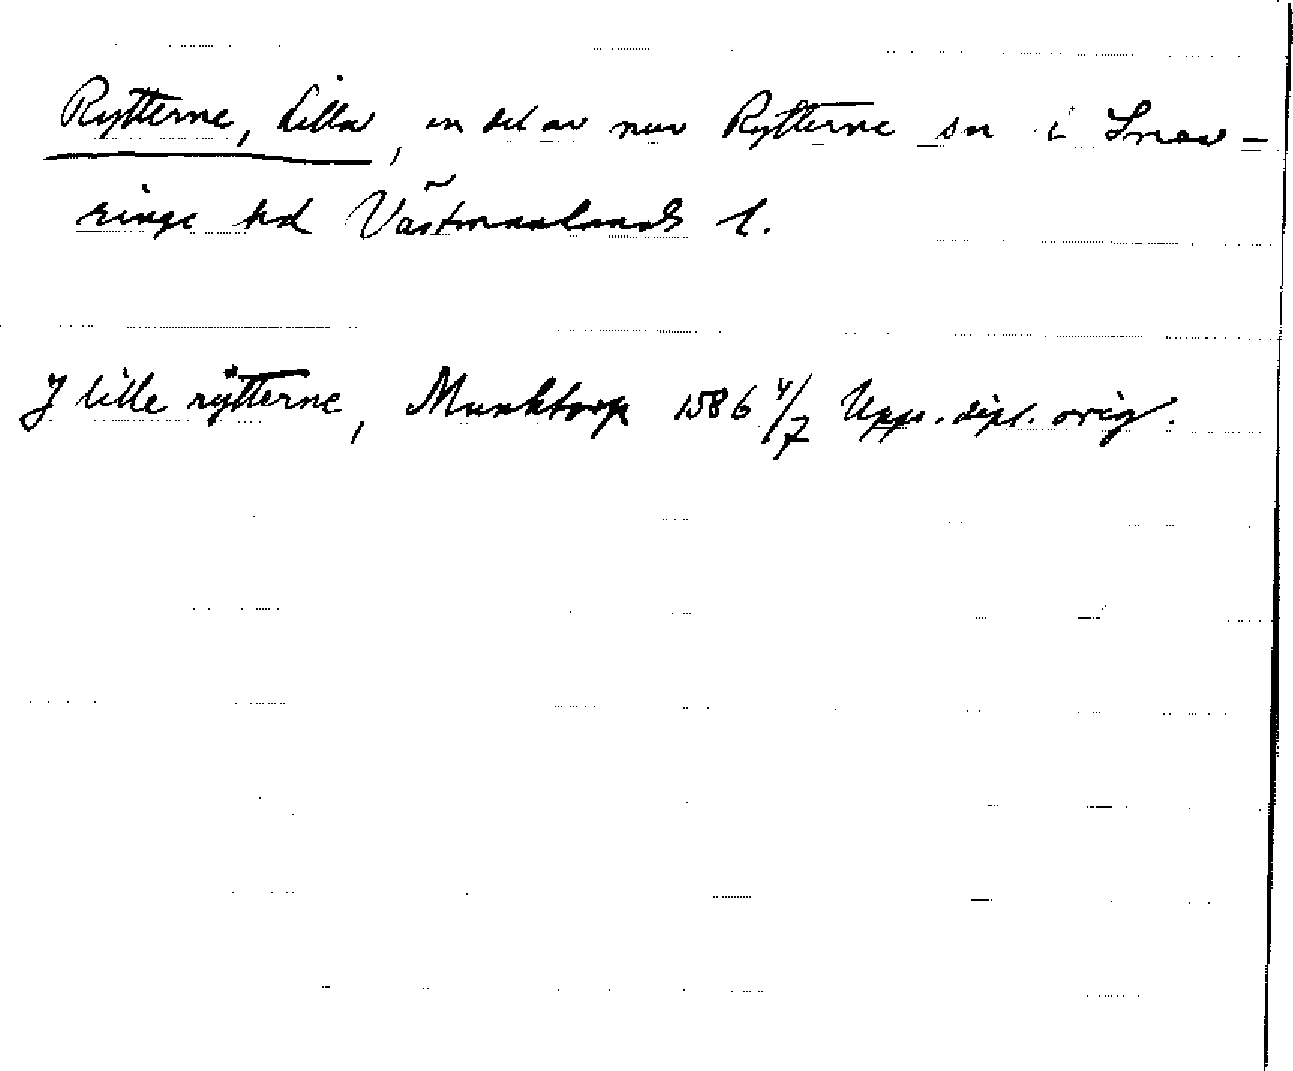 Rytterne, Lilla, en del av nuv Rytterne sn i Snev-
ringe hd Västmanlands l.
J lille rÿtterne, Munktorp 1586 4/7 Upps. dipl. orig.